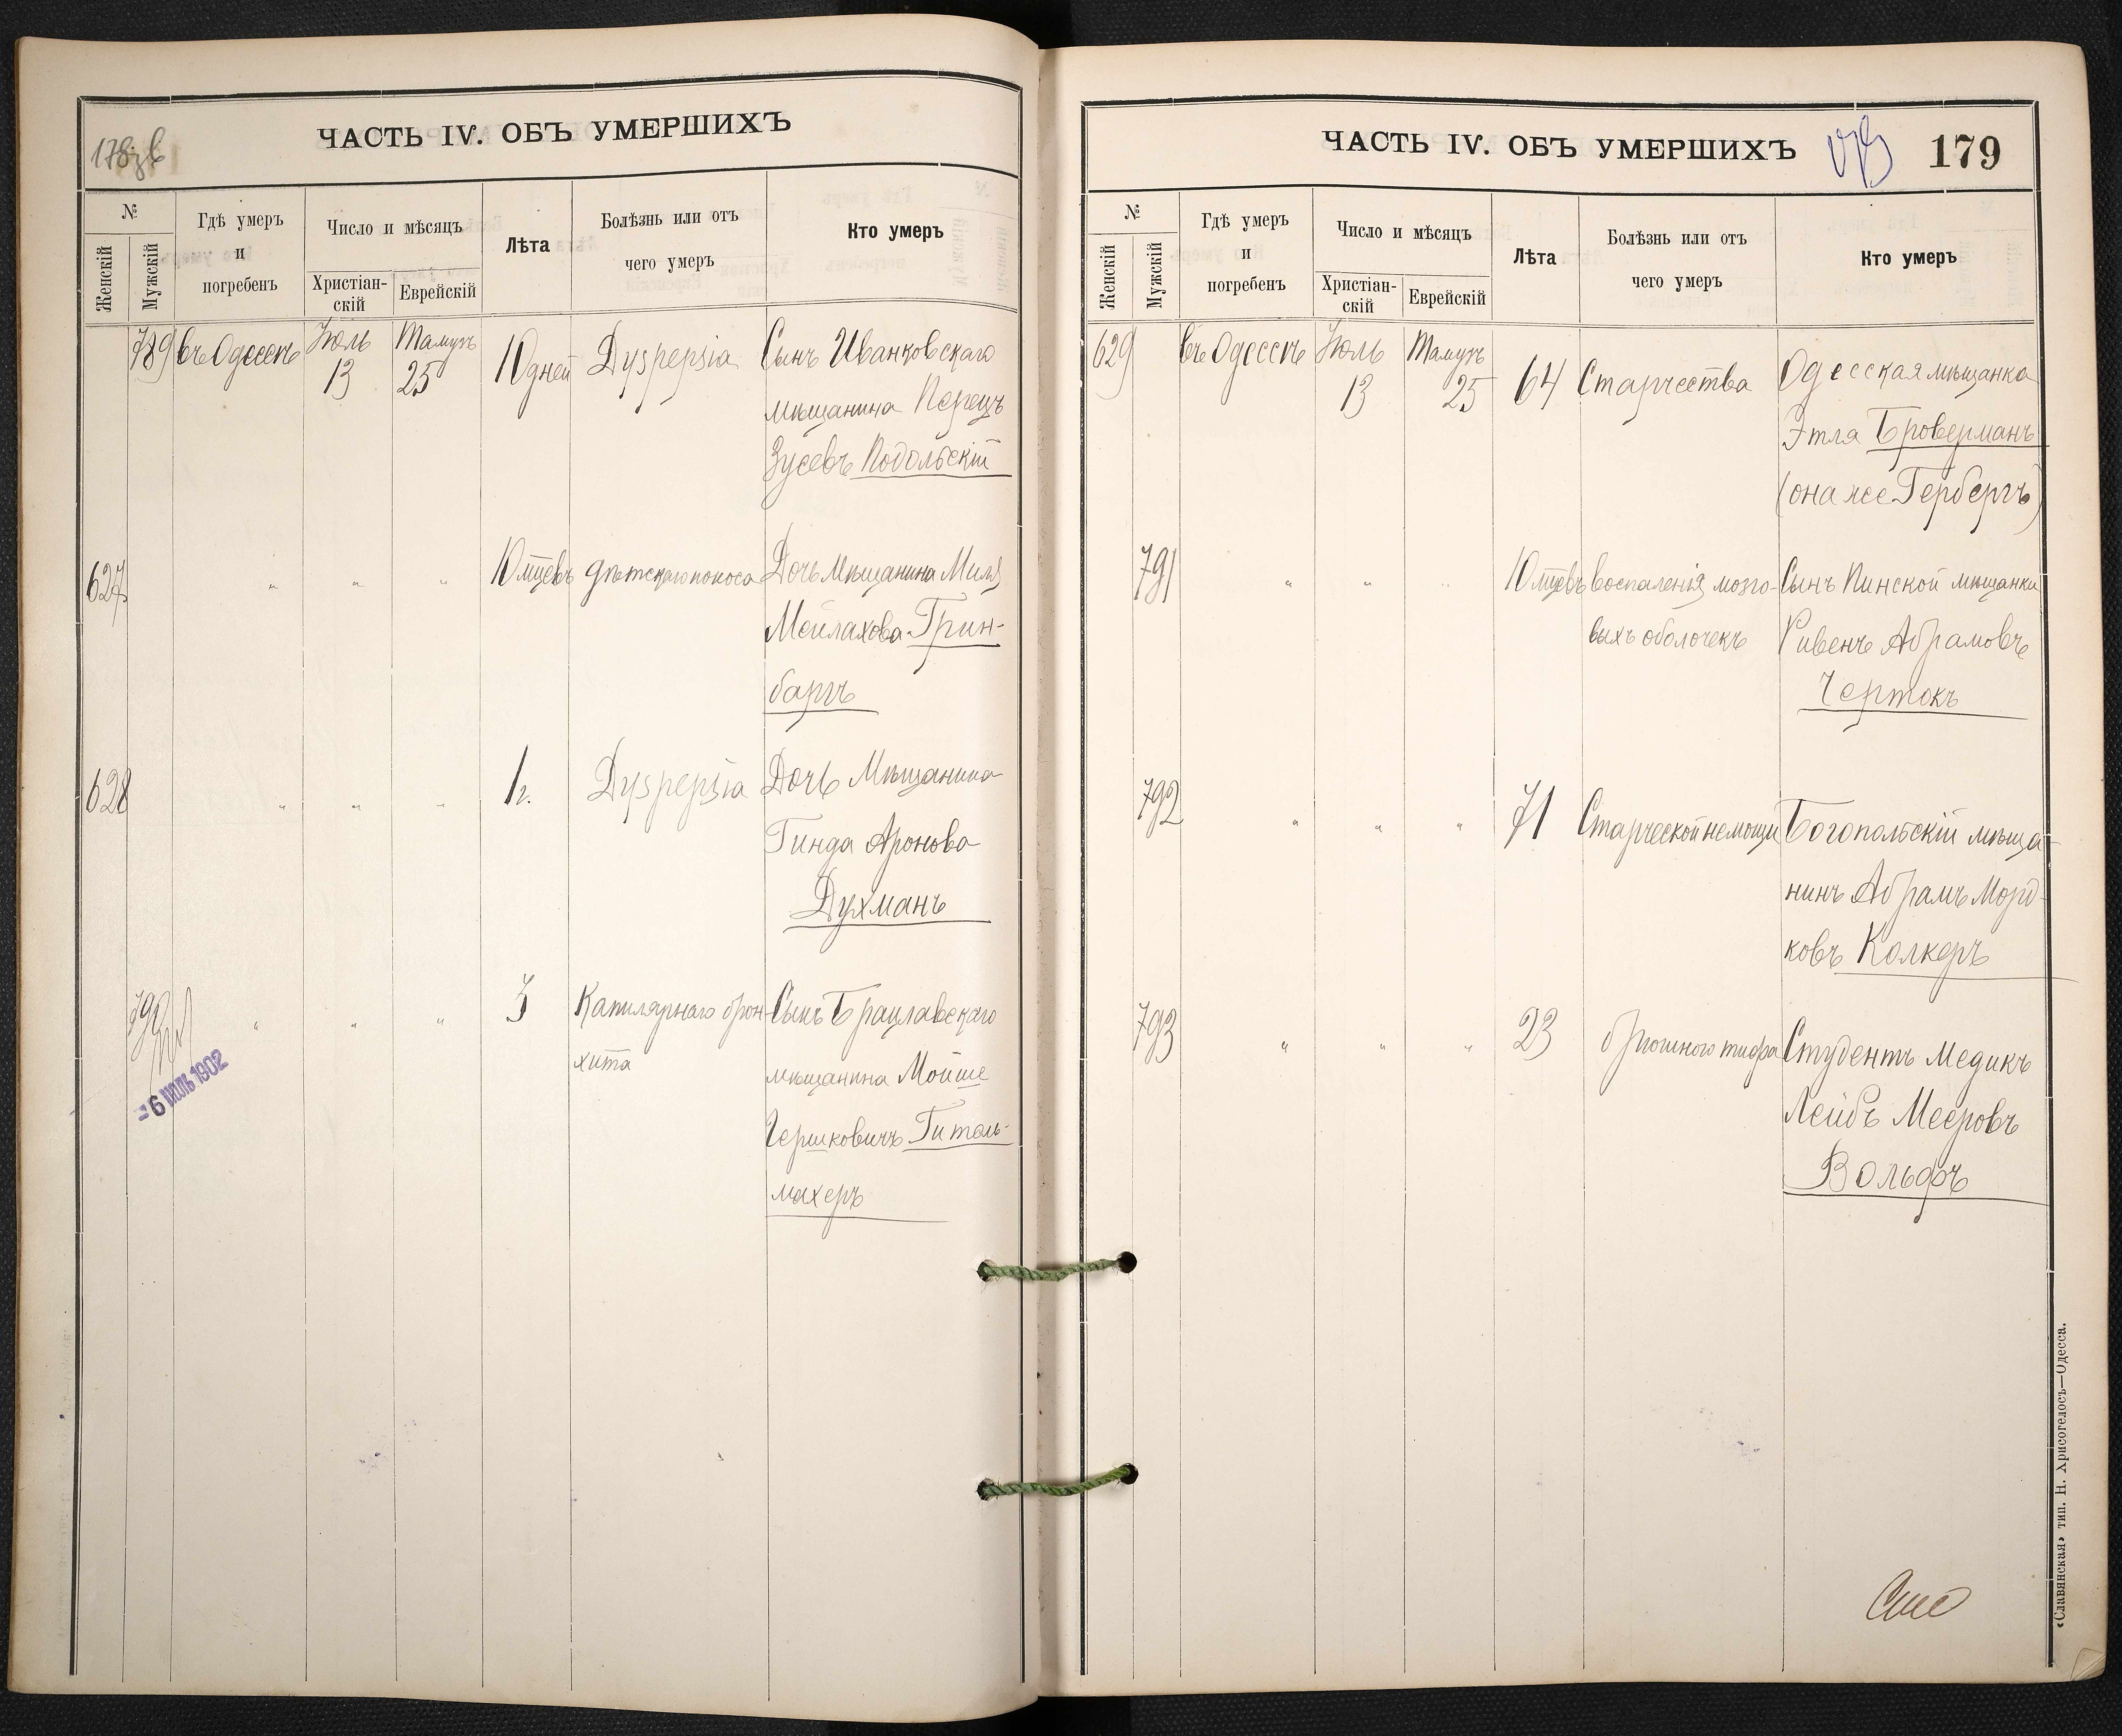 178 зв
ЧАСТЬ IV. ОБЪ УМЕРШИХЪ
№
Женскій
Мужскій
Гдѣ умеръ
и
погребенъ
Число и мѣсяцъ
Христіан-
скій
Еврейскій
Лѣта
Болѣзнь или отъ
чего умеръ
Кто умеръ
789 въ Одессѣ Іюль Тамузъ 10 дней Dyspepsia Сынъ Иванковскаго
13 25
мѣщанина Перецъ
Зусевъ Подольскій
627 " " " 10 мцевъ дѣтскаго поноса Дочь Мѣщанина Миля
Мойлахова Грин-
баргъ
628 " " " 1 г. Dyspepsia Дочь Мѣщанина
Гинда Аронова
Духманъ
790 " " " 3 Капилярнаго брон- Сынъ Брацлавскаго
хита мѣщанина Мойше
Гершковичъ Гитель-
махеръ
- 6 ИЮЛЬ 1902
ЧАСТЬ IV. ОБЪ УМЕРШИХЪ
179
№
Женскій
Мужскій
Гдѣ умеръ
и
погребенъ
Число и мѣсяцъ
Христіан-
скій
Еврейскій
Лѣта
Болѣзнь или отъ
чего умеръ
Кто умеръ
629 въ Одессѣ Іюль Тамузъ 64 Старчества Одесская мѣщанка
13 25
Этля Броверманъ
(она же Гербергъ)
791 " " " 10 мцевъ воспаленія мозго- Сынъ Пинской мѣщанки
выхъ оболочекъ Рувенъ Абрамовъ
Чертокъ
792 " " " 71 Старческой немощи Богопольскій мѣща-
нинъ Абрамъ Морд-
ковъ Колкеръ
793 " " " 23 брюшного тифа Студентъ Медикъ
Лейбъ Мееровъ
Вольфъ
«Славянская» тип. Н. Хрисогелосъ—Одесса.